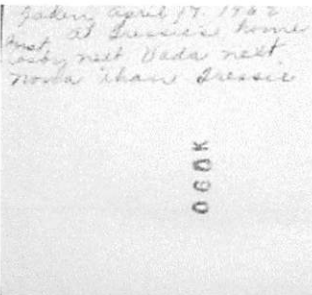 taken April 17. 1962
at Dressie's home
first
Cosby next Dada next
Nora than Dressie
OGOK